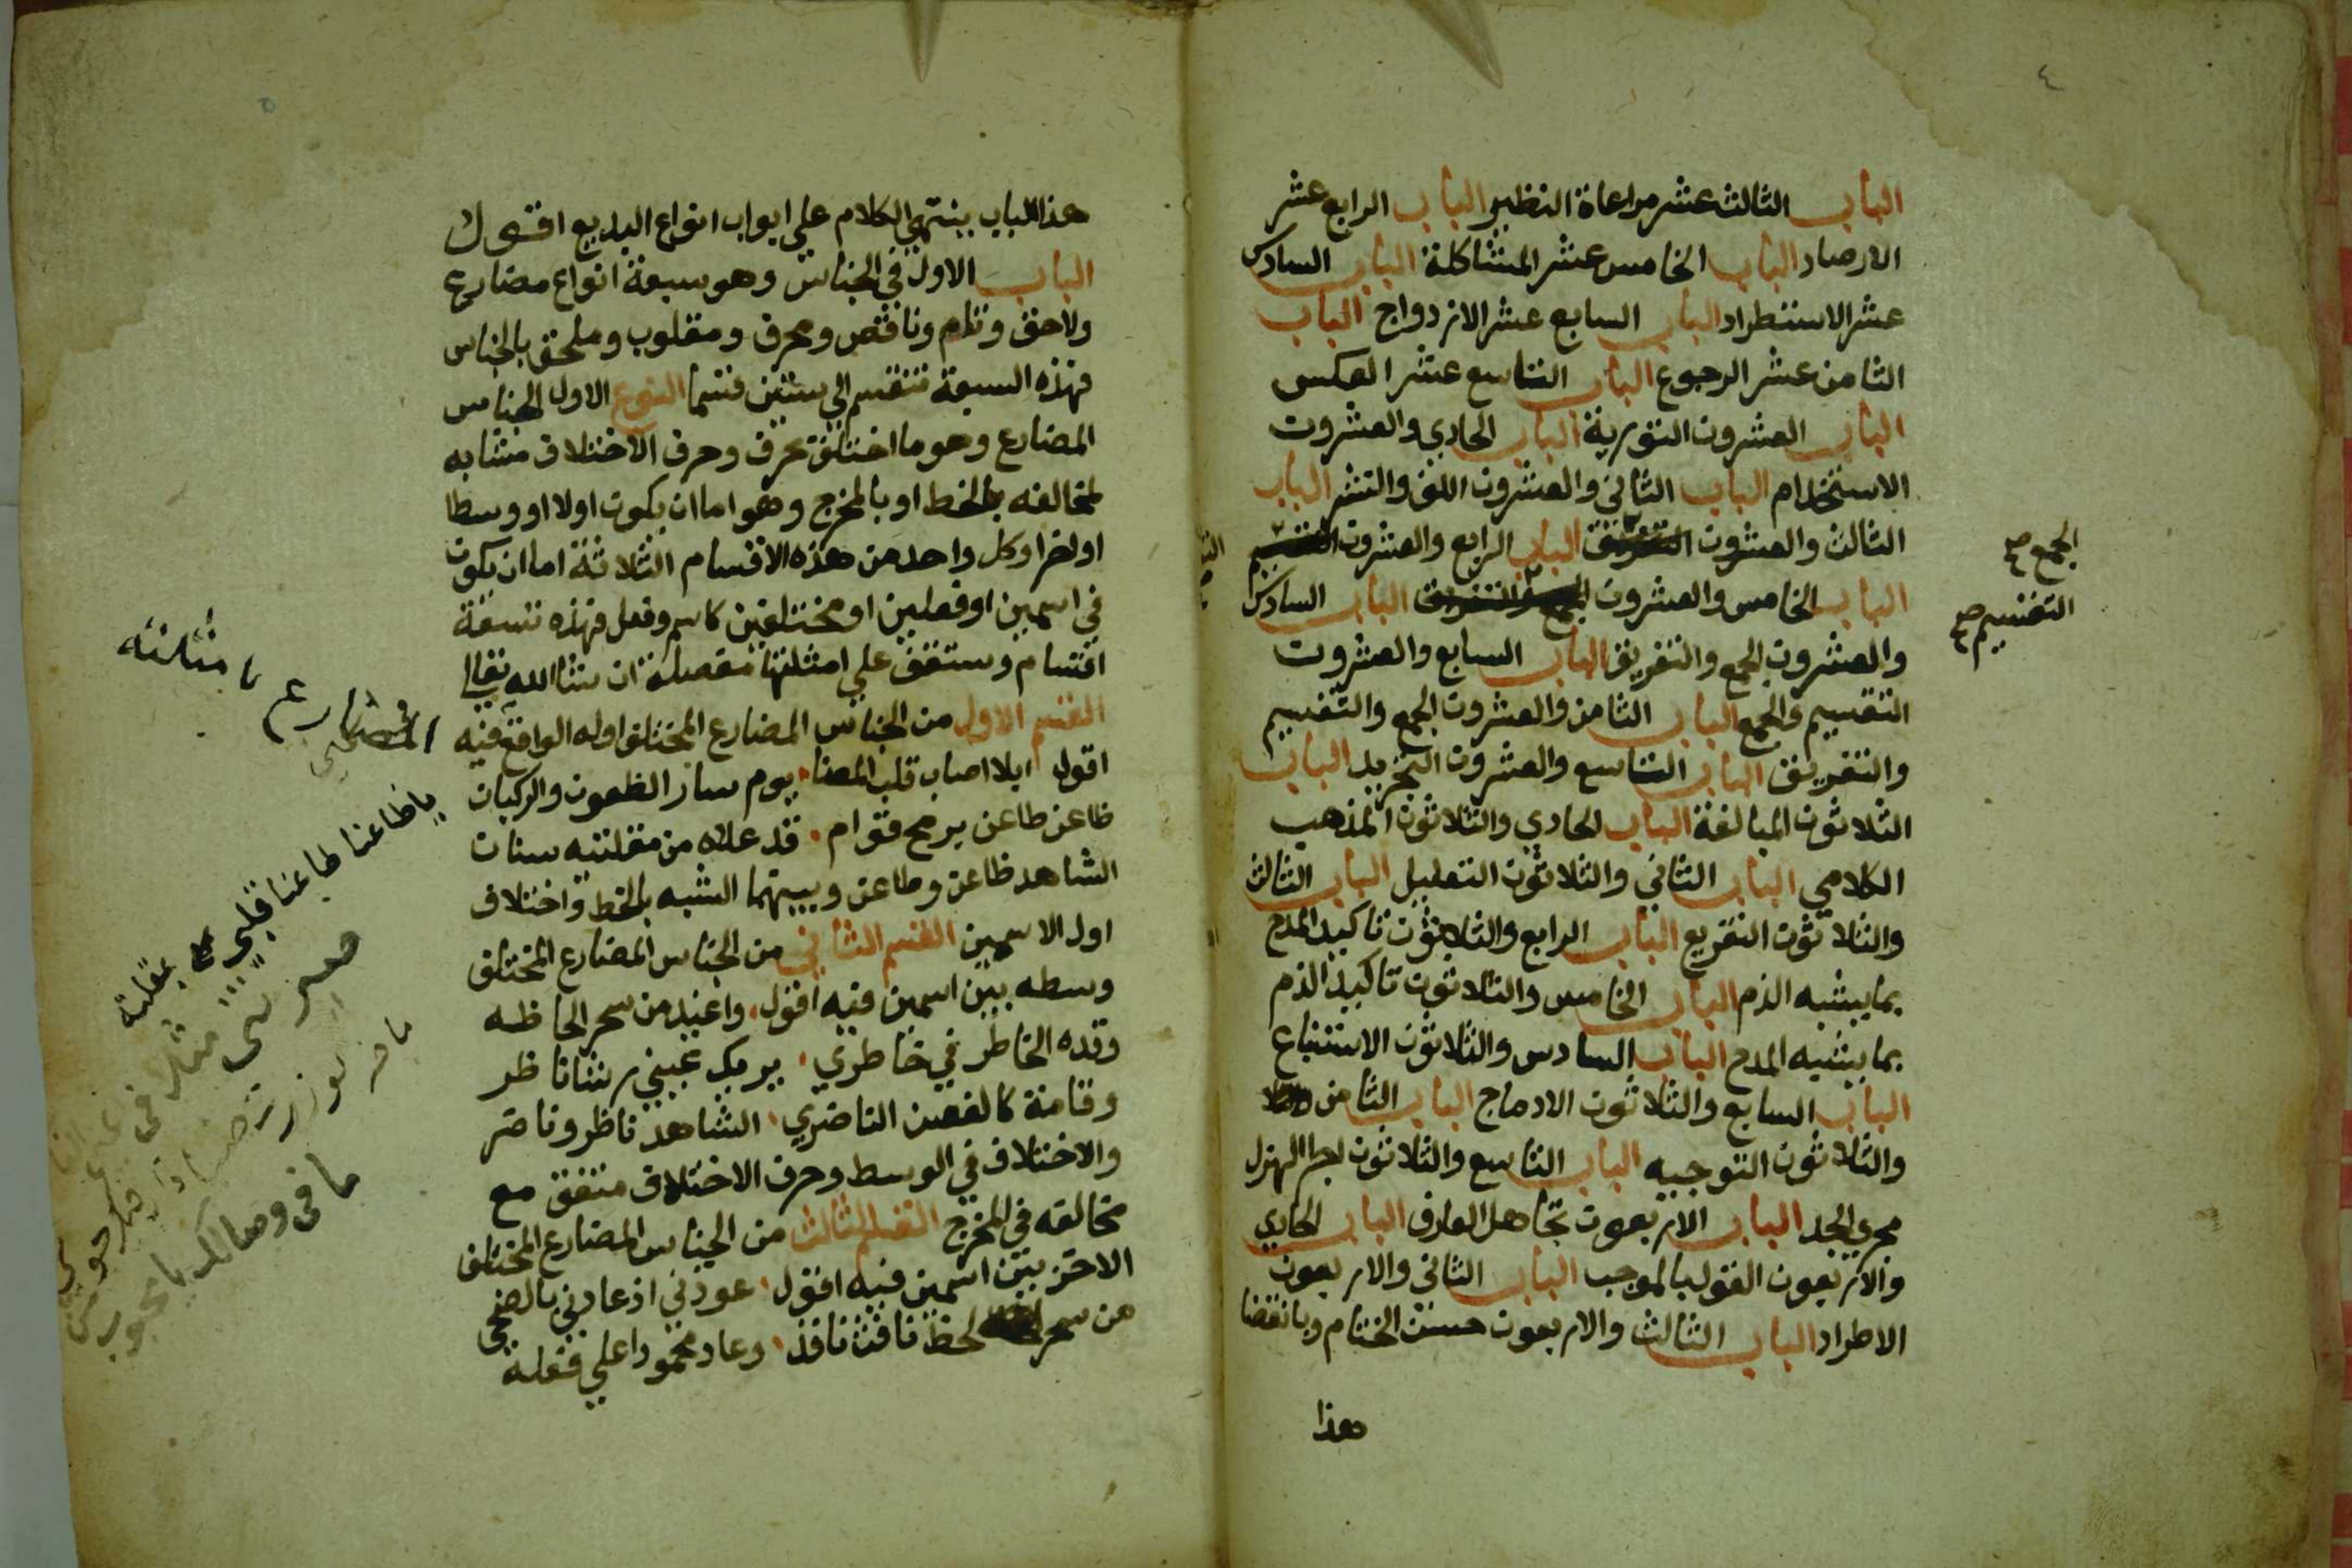 ٤
الباب الثالث عشر مراعاة النظير الباب الرابع عشر
الارصاد الباب الخامس عشر المشاكلة الباب السادس
عشر الاستطراد الباب السابع عشر الازدواج الباب
الثامن عشر الرجوع الباب التاسع عشر العكس
الباب العشرون التورية الباب الحادي والعشرون
الاستخدام الباب الثاني والعشرون اللف والنشر الباب
الثالث والعشرون التفريق الباب الرابع والعشرون التقسيم
الجمع صح
الباب الخامس والعشرون الجمع والتفريق الباب السادس
التقسيم صح
والعشرون الجمع والتفريق الباب السابع والعشرون
التقسيم والجمع الباب الثامن والعشرون الجمع والتقسيم
والتفريق الباب التاسع والعشرون التجريد الباب
الثلاثون المبالغة الباب الحادي والثلاثون المذهب
الكلامي الباب الثاني والثلاثون التعليل الباب الثالث
والثلاثون التفريع الباب الرابع والثلاثون تاكيد المدح
بما يشبه الذم الباب الخامس والثلاثون تاكيد الذم
بما يشبه المدح الباب السادس والثلاثون الاستتباع
الباب السابع والثلاثون الادماج الباب الثامن
والثلاثون التوجيه الباب التاسع والثلاثون اجرا الهزل
مجري الجد الباب الاربعون تجاهل العارف الباب الحادي
والاربعون القول بالموجب الباب الثاني والاربعون
الاطراد الباب الثالث والاربعون حسن الختام وبانقضا
هذا
٥
هذا الباب ينتهي الكلام علي ابواب انواع البديع اقول
الباب الاول في الجناس وهو سبعة انواع مضارع
ولاحق وتام وناقص ومحرف ومقلوب وملحق بالجناس
فهذه السبعة تنقسم الي ستين قسما النوع الاول الجناس
المضارع وهو ما اختلف بحرف وحرف الاختلاف مشابه
لمخالفه بالخط او بالمخرج وهو اما ان يكون اولا او وسطا
او اخرا وكل واحد من هذه الاقسام الثلاثة اما ان يكون
في اسمين او فعلين او مختلفين كاسم وفعل فهذه تسعة
اقسام وستقف علي امثلتها مفصلة ان شا الله تعالي
القسم الاول من الجناس المضارع المختلف اوله الواقع فيه
اقول ابلا اصاب قلب المعنا يوم سار الظعون والركبان
ظاعن طاعن برمح قوام قد علاه من مقلتيه سنان
الشاهد ظاعن وطاعن وبينهما الشبه بالخط واختلاف
اول الاسمين القسم الثاني من الجناس المضارع المختلف
وسطه بين اسمين فيه اقول واغيد من سحر الحاظه
وقده الخاطر في خاطري يريك عيني رشا ناظر
وقامة كالغصن الناضري الشاهد ناظر وناضر
والاختلاف في الوسط وحرف الاختلاف متفق مع
مخالفه في المخرج القسم الثالث من الجناس المضارع المختلف
الاخر بين اسمين فيه اقول عوذني اذ عادني بالضحي
من سحر لحظ نافث نافذ وعاد محمودا علي فعله
المضارع يا مثاله
يا ظاعنا طاعنا قلبي بمقلته